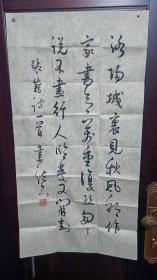 洛陽城裏見秋風欲作
家書意萬重復恐匆匆
說不盡行人臨發又開封
張籍詩一首